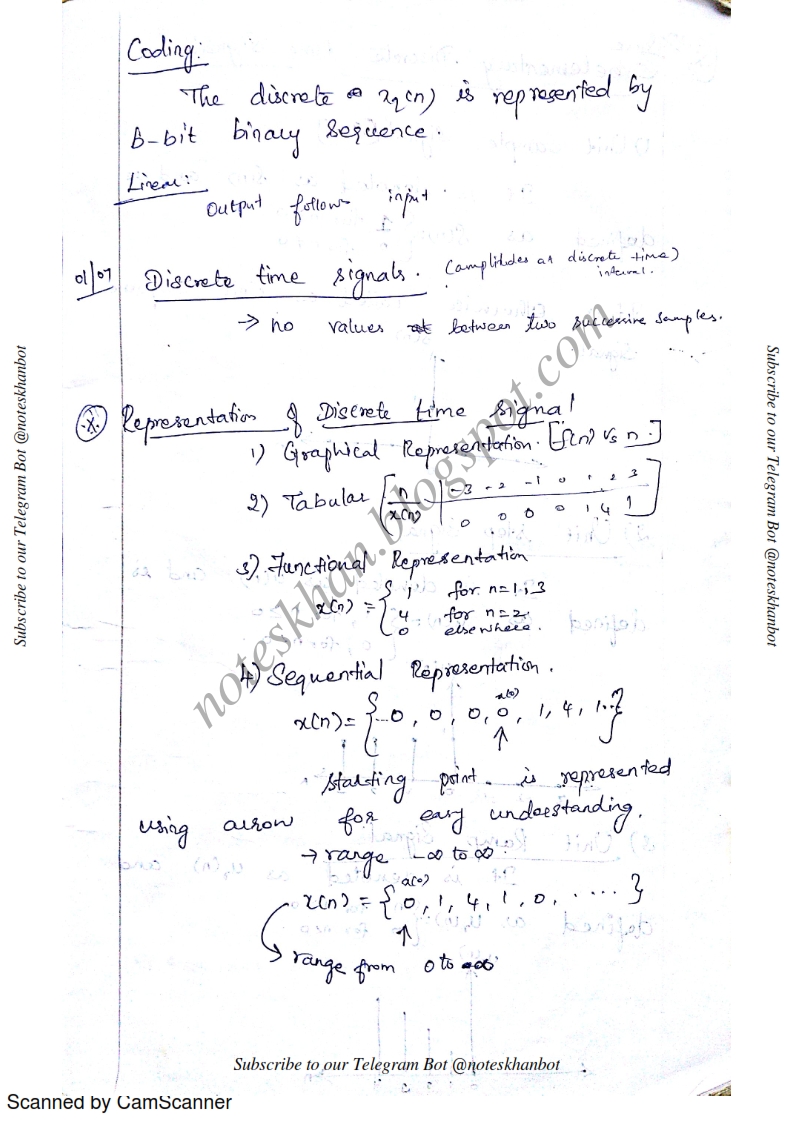 Coding:
The discrete xq(n) is represented by
B-bit binary sequence.
Linear:
output follow input
01/07
Discrete time signals. (amplitudes at discrete time)
interval.
→ no values between two successive samples.
(X) Representation of Discrete time signal
1) Graphical Representation. [f(n) vs n.]
2) Tabular [n | -3 -2 -1 0 1 2 3
x(n) | 0 0 0 0 1 4 1]
3) Functional Representation
x(n) = { 1 for n=1,3
4 for n=2
0 elsewhere.
4) Sequential Representation.
x(0)
x(n) = {...0, 0, 0, 0, 1, 4, 1...}
↑
starting point is represented
using arrow for easy understanding.
→ range -∞ to ∞
x(0)
x(n) = {0, 1, 4, 1, 0, ....}
↑
→ range from 0 to ∞
noteskhan.blogspot.com
Subscribe to our Telegram Bot @noteskhanbot
Subscribe to our Telegram Bot @noteskhanbot
Subscribe to our Telegram Bot @noteskhanbot
Scanned by CamScanner